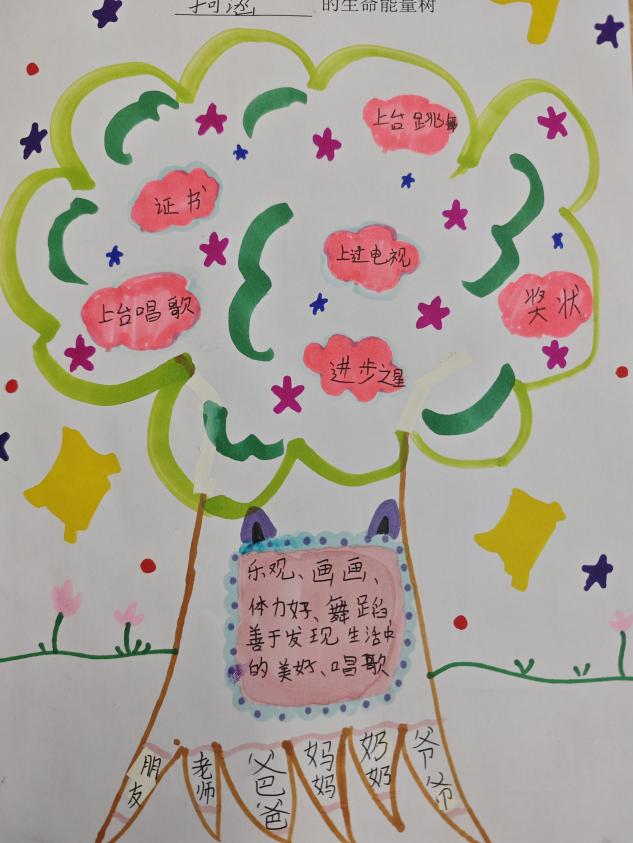 的生命能量树
上台跳舞
证书
上过电视
上台唱歌
奖状
进步之星
乐观、画画、
体力好、舞蹈
善于发现生活中
的美好、唱歌
朋友
老师
爸爸
妈妈
奶奶
爷爷